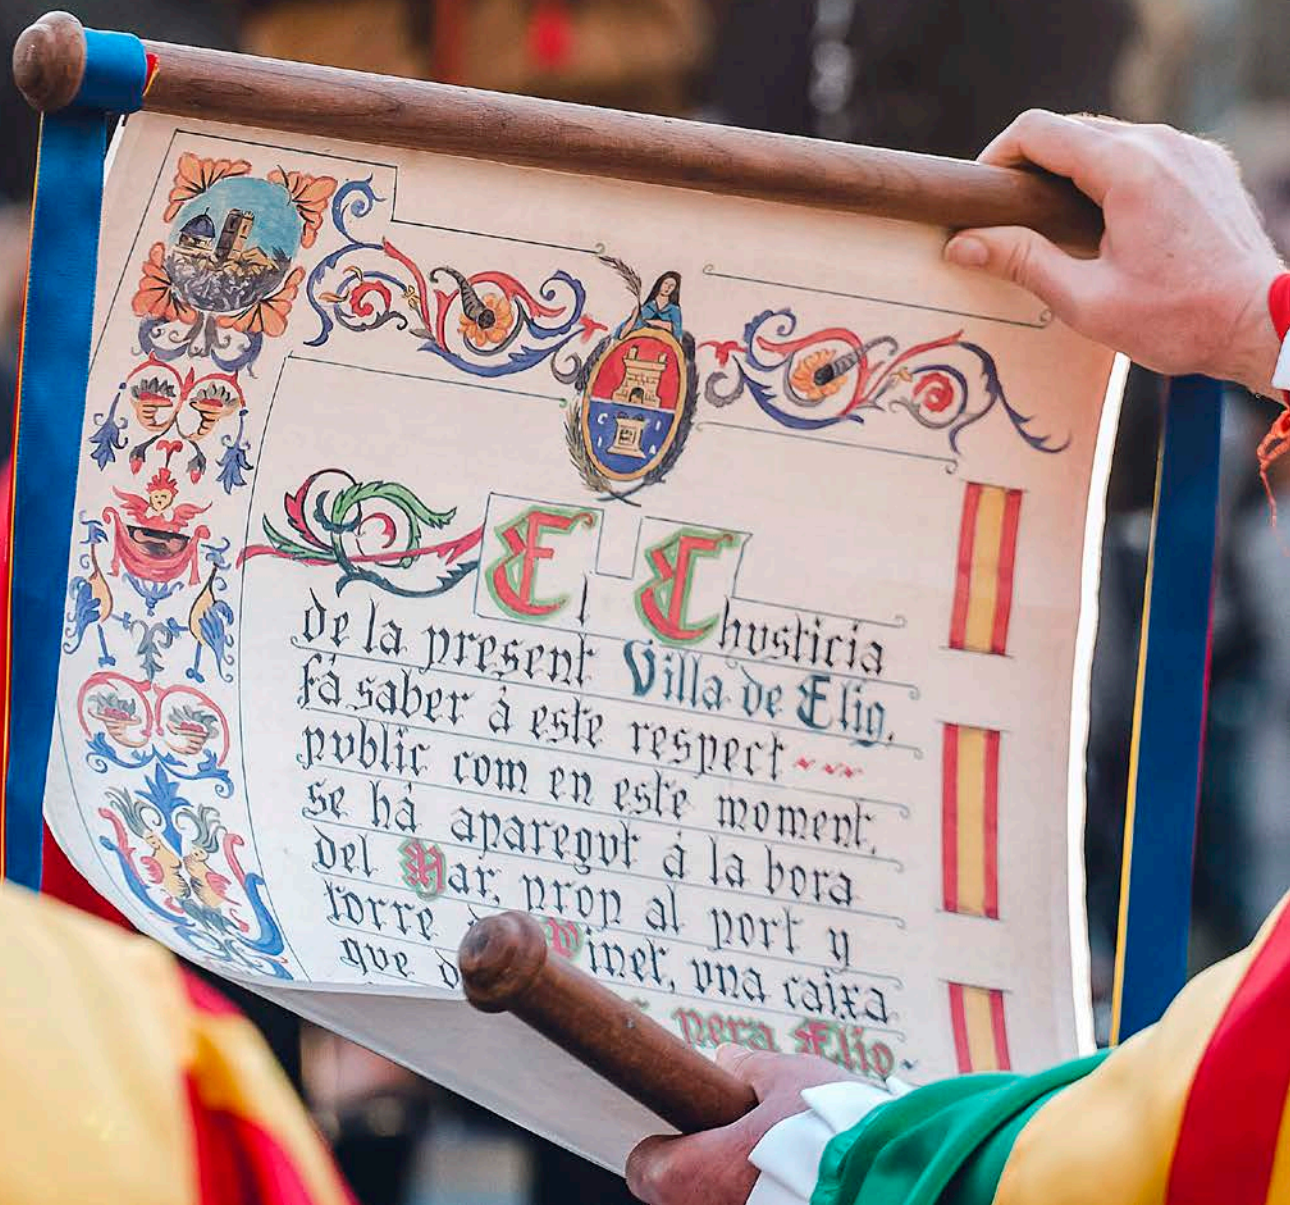 El Chusticia
de la present Villa de Elig,
fá saber á este respect
public com en este moment,
se há aparegut á la bora
del Mar, prop al port y
torre Pinet, una caixa
que pera Elig